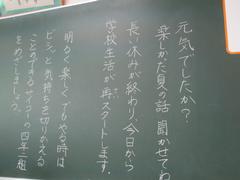 元気でしたか?
楽しかた夏の話 聞かせてね
長い休みが終わり、今日から
学校生活が再スタートします。
明るく楽しくでもやる時は
ビシッと気持ちを切りかえる
ことのできるサイコーの四年一組
をめざしましょう。